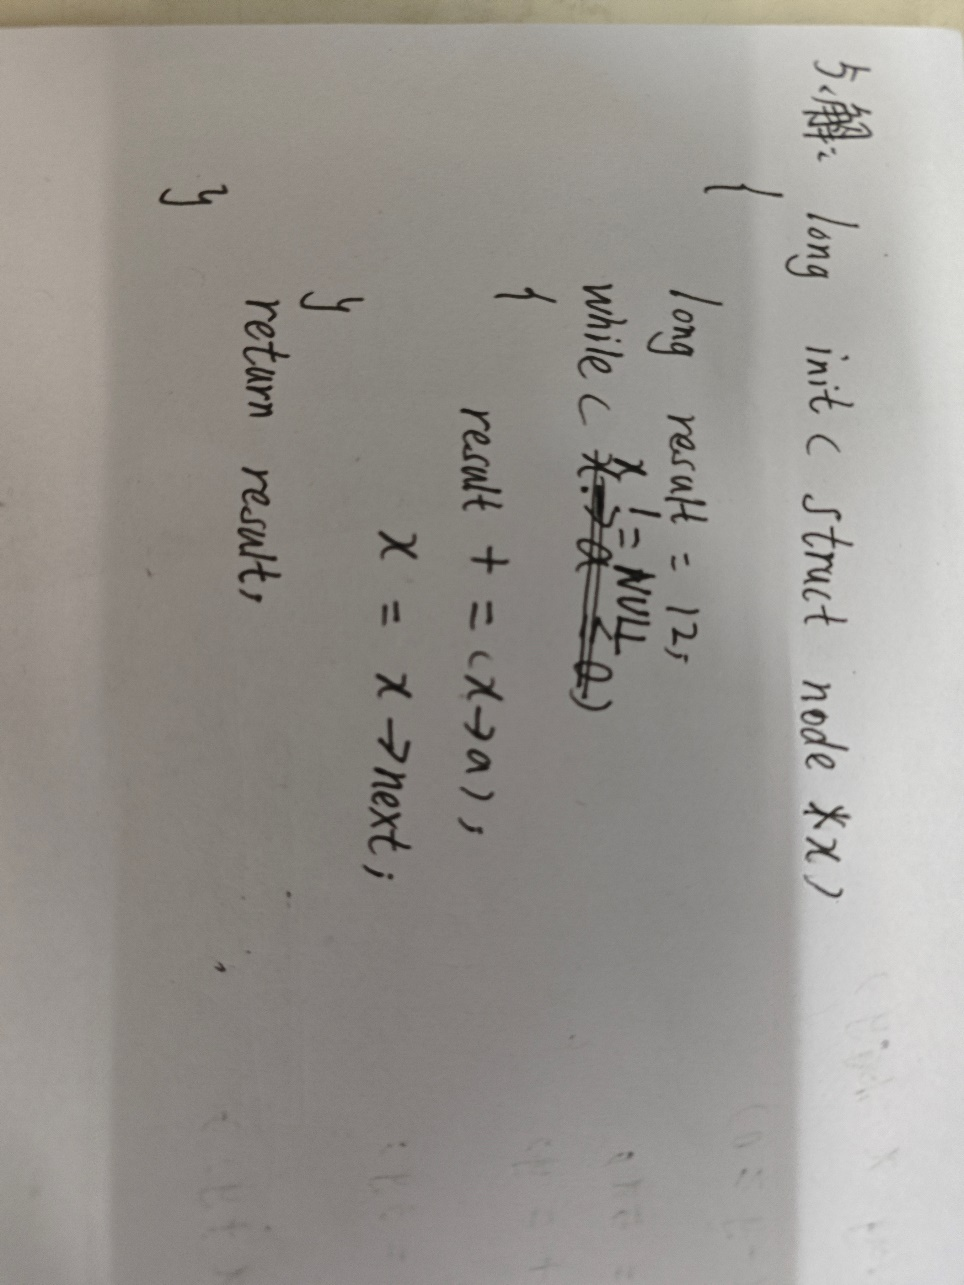 5.解: long init ( struct node *x)
{
long result = 12;
while ( x != NULL )
{
result += (x→a);
x = x→next;
}
return result;
}